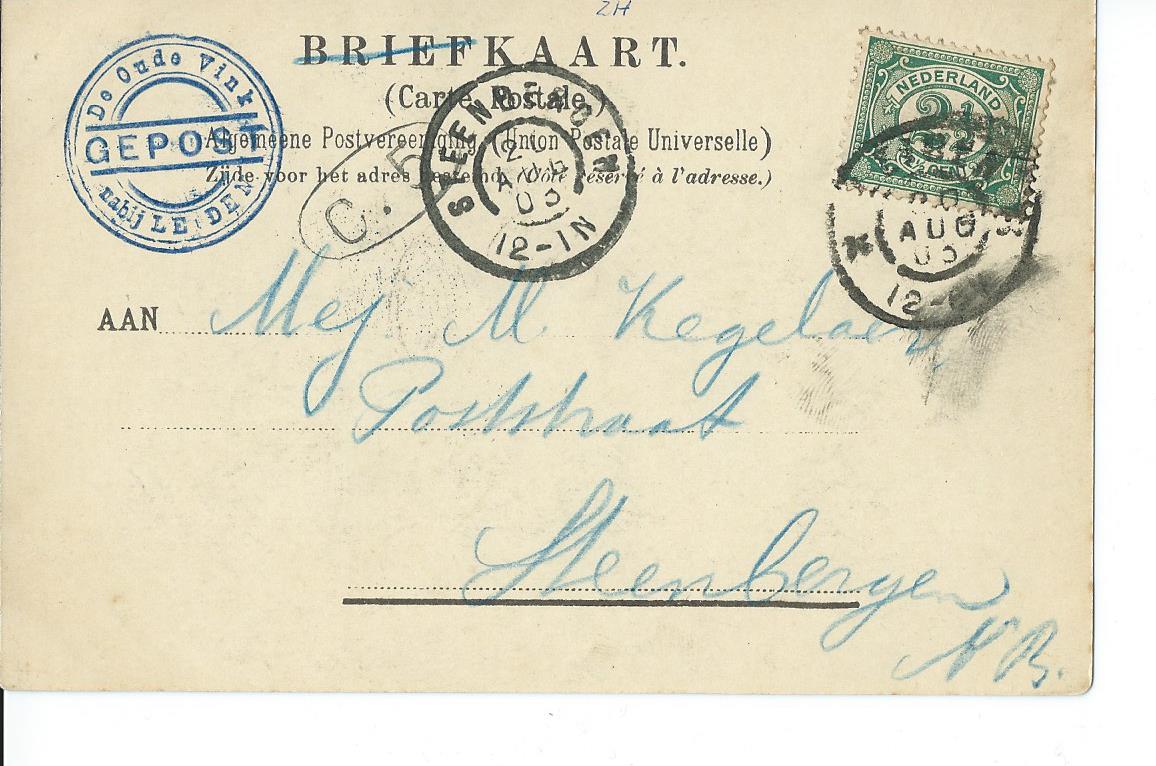 ZH
BRIEFKAART.
(Carte Postale)
Algemeene Postvereeniging (Union Postale Universelle)
Zijde voor het adres bestemd. (Côté réservé à l'adresse.)
De Oude Vink
GEPOST
nabij LEIDEN
C. 5
STEENBERGEN
2
AUG
03
12-1N
NEDERLAND
2½
CENT
AUG
03
12-
AAN Mej M. Kegelaer
Poststraat
Steenbergen
N B.